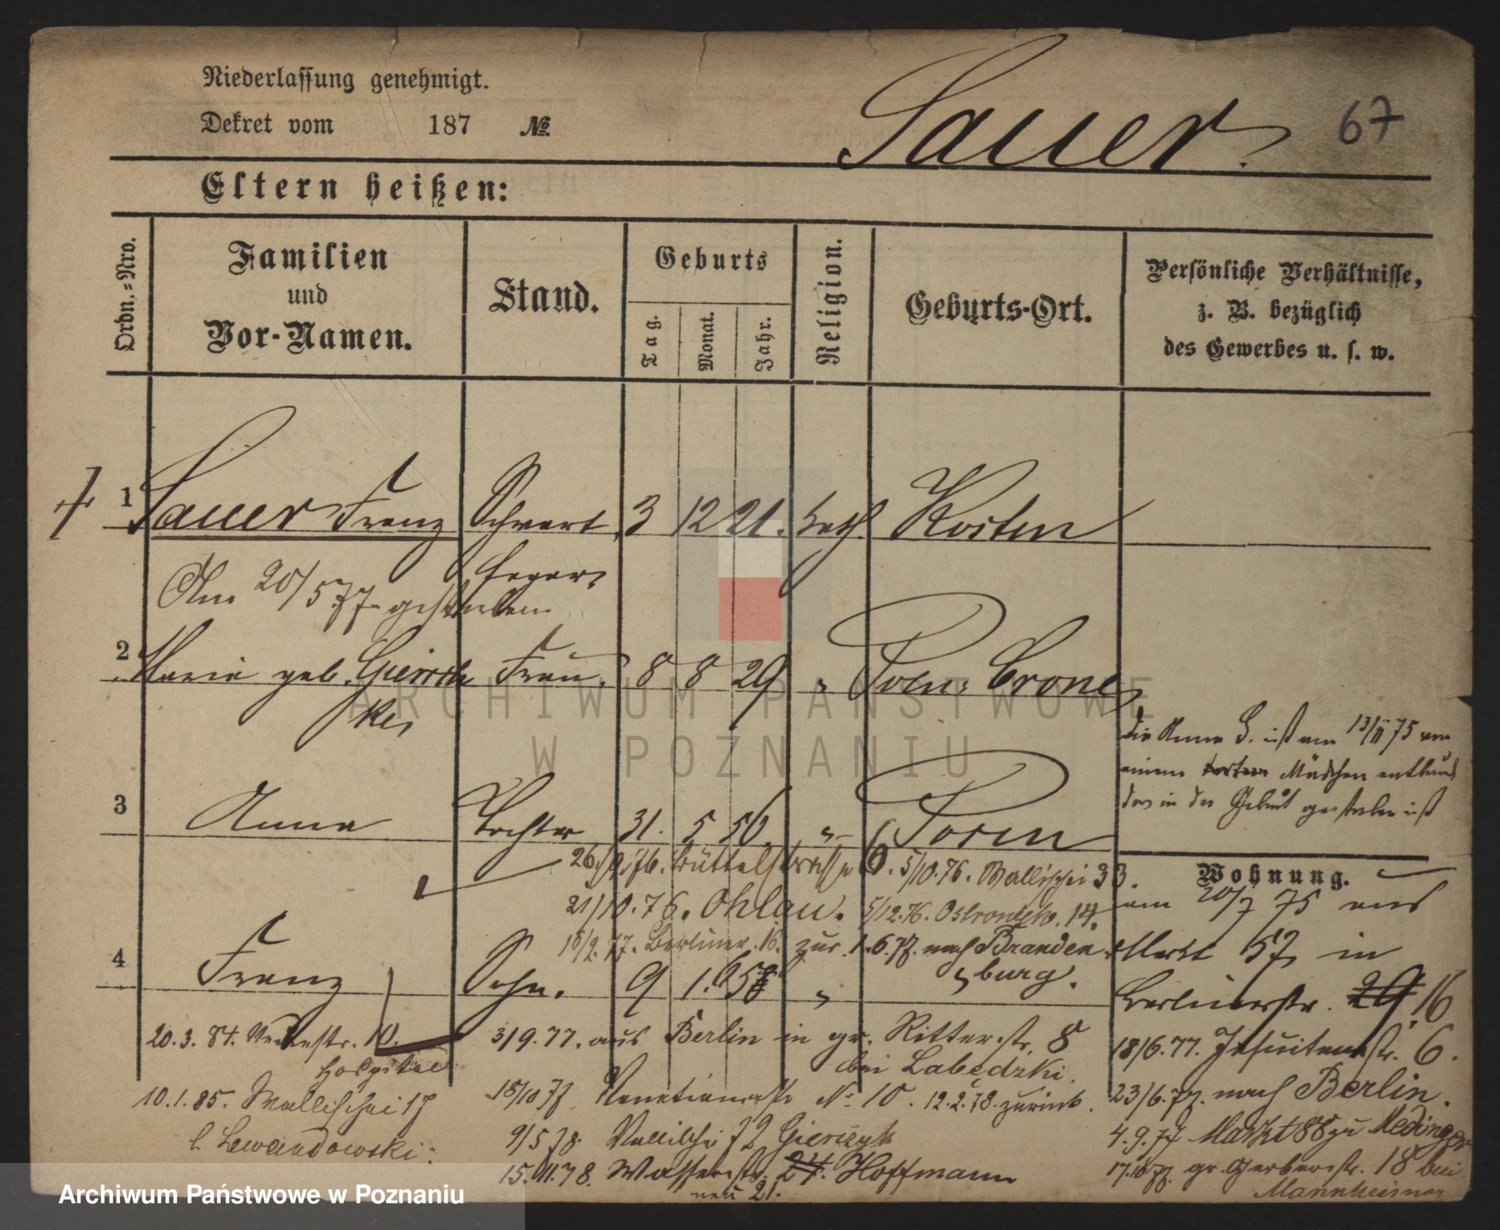 Niederlassung genehmigt.
Dekret vom 187 №
Sauer. 67
Eltern heißen:
Ordn.-Nro.
Familien
und
Vor-Namen.
Stand.
Geburts
Tag.
Monat.
Jahr.
Religion.
Geburts-Ort.
Persönliche Verhältnisse,
z. B. bezüglich
des Gewerbes u. s. w.
1 Sauer Franz 3 12 21. kath. Kosten
Am 20/5 77 gestorben
2 Maria geb. Frau. 8 8 29 " Poln: Crone
ARCHIWUM PAŃSTWOWE
W POZNANIU
Die Anna S. ist am 75 von
einem Mädchen entbund
das in der Geburt gestorben ist
3 Anna Tochter 31. 5 56 "
Wohnung.
26/9.76. Büttelstrasse 6. 5/10.76. Wallischei 33.
21/10.76. Ohlau. 5/12.76. 14.
am 20/7 75 aus
16/2.77. Berliner. 16. zur. 1.6.77. nach Branden
burg.
Markt 57 in
4 Franz Sohn. 9 1. "
Berlinerstr. 29. 16
20.3.84. 10.
Hospital
3/9.77. aus Berlin in gr. Ritterstr. 8
bei Labedzki.
18/6.77. Jesuitenstr. 6.
10.1.85. Wallischei 17
b. Lewandowski.
15/10 77 Venetianerstr № 10. 12.2.78. zurück.
23/6.77. nach Berlin.
9/5 78. Wallischei 72 Gierczyk
4.9.77 Markt 88 zu
15.11.78. Wasserstr. 24. Hoffmann
neu 21.
17.10 77. gr. Gerberstr. 18 bei
Mannheimer
Archiwum Państwowe w Poznaniu